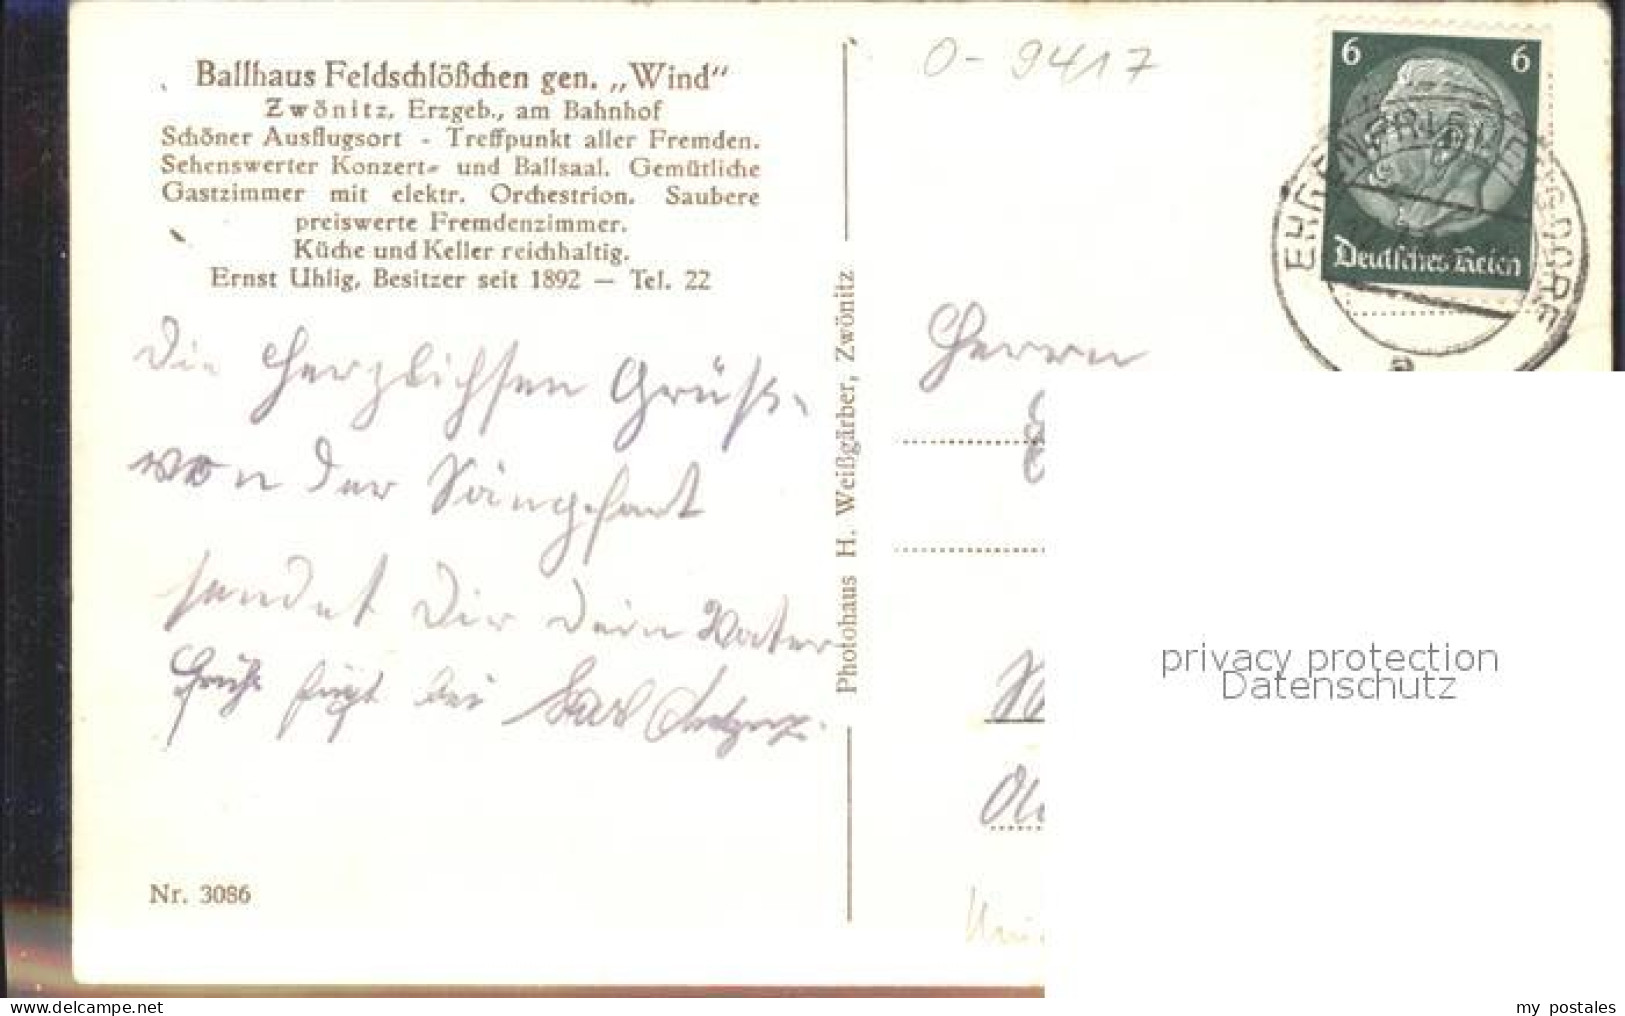 Ballhaus Feldschlößchen gen. „Wind“
Zwönitz, Erzgeb., am Bahnhof
Schöner Ausflugsort - Treffpunkt aller Fremden.
Sehenswerter Konzert- und Ballsaal. Gemütliche
Gastzimmer mit elektr. Orchestrion. Saubere
preiswerte Fremdenzimmer.
Küche und Keller reichhaltig.
Ernst Uhlig, Besitzer seit 1892 — Tel. 22
Die Herzlichsen Grüße
von der
sendet Dir dein Vater
Gruß fügt bei Karl
Nr. 3086
Photohaus H. Weißgärber, Zwönitz
O-9417
6 6
Deutsches Reich
a
Herrn
privacy protection
Datenschutz
www.delcampe.net
my_postales